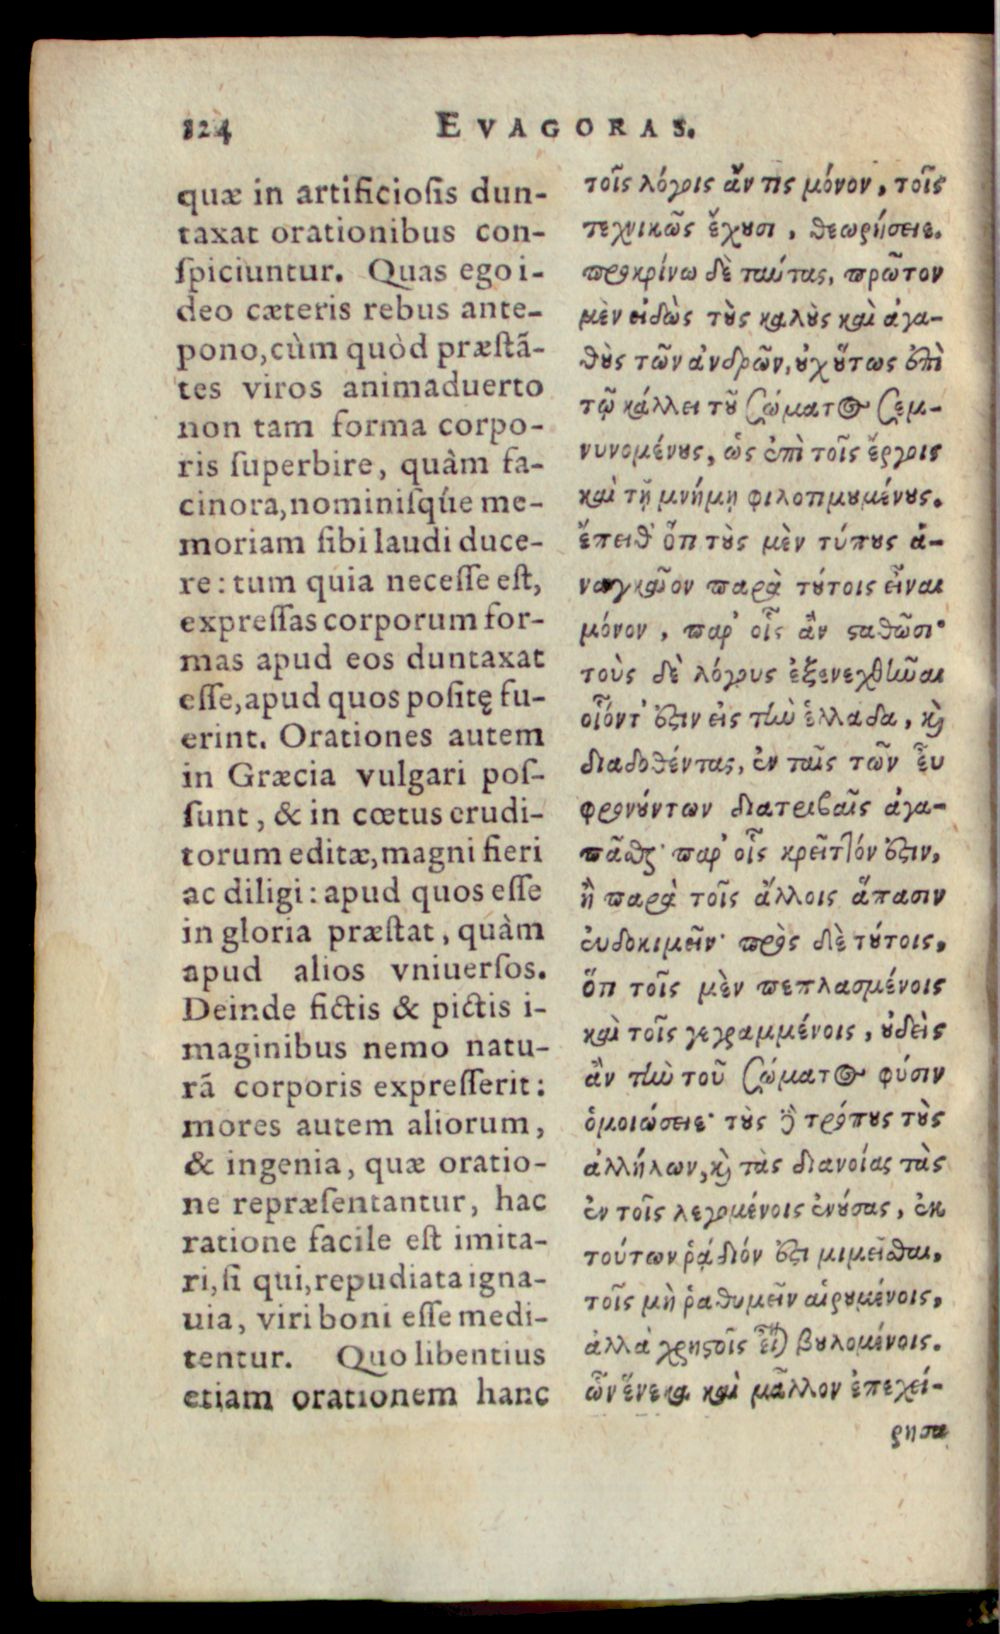 124
EVAGORAS.
quæ in artificiosis dun-
taxat orationibus con-
spiciuntur. Quas ego i-
deo cæteris rebus ante-
pono, cùm quòd præstã-
tes viros animaduerto
non tam forma corpo-
ris superbire, quàm fa-
cinora, nominisqúe me-
moriam sibi laudi duce-
re: tum quia necesse est,
expressas corporum for-
mas apud eos duntaxat
esse, apud quos positę fu-
erint. Orationes autem
in Græcia vulgari pos-
sunt, & in cœtus erudi-
torum editæ, magni fieri
ac diligi: apud quos esse
in gloria præstat, quàm
apud alios vniuersos.
Deinde fictis & pictis i-
maginibus nemo natu-
rã corporis expresserit:
mores autem aliorum,
& ingenia, quæ oratio-
ne repræsentantur, hac
ratione facile est imita-
ri, si qui, repudiata igna-
uia, viri boni esse medi-
tentur. Quo libentius
etiam orationem hanc
τοῖς λόγοις ἄν τις μόνον, τοῖς
τεχνικῶς ἔχουσι, θεωρήσειε.
προκρίνω δὲ ταύτας, πρῶτον
μὲν εἰδὼς τοὺς καλοὺς καὶ ἀγα-
θοὺς τῶν ἀνδρῶν, οὐχ οὕτως ἐπὶ
τῷ κάλλει τοῦ σώματος σεμ-
νυνομένους, ὡς ἐπὶ τοῖς ἔργοις
καὶ τῇ μνήμῃ φιλοτιμουμένους.
ἔπειθ' ὅτι τοὺς μὲν τύπους ἀ-
ναγκαῖον παρὰ τούτοις εἶναι
μόνον, παρ' οἷς ἂν σταθῶσι·
τοὺς δὲ λόγους ἐξενεχθῆναι
οἷόντ' ἐστιν εἰς τὴν ἑλλάδα, καὶ
διαδοθέντας, ἐν ταῖς τῶν εὖ
φρονούντων διατριβαῖς ἀγα-
πᾶσθαι· παρ' οἷς κρεῖττόν ἐστιν,
ἢ παρὰ τοῖς ἄλλοις ἅπασιν
εὐδοκιμεῖν· πρὸς δὲ τούτοις,
ὅτι τοῖς μὲν πεπλασμένοις
καὶ τοῖς γεγραμμένοις, οὐδεὶς
ἂν τὴν τοῦ σώματος φύσιν
ὁμοιώσειε· τοὺς δὲ τρόπους τοὺς
ἀλλήλων, καὶ τὰς διανοίας τὰς
ἐν τοῖς λεγομένοις ἐνούσας, ἐκ
τούτων ῥᾴδιόν ἐστι μιμεῖσθαι,
τοῖς μὴ ῥαθυμεῖν αἱρουμένοις,
ἀλλὰ χρηστοῖς εἶναι βουλομένοις.
ὧν ἕνεκα καὶ μᾶλλον ἐπεχεί-
ρησα